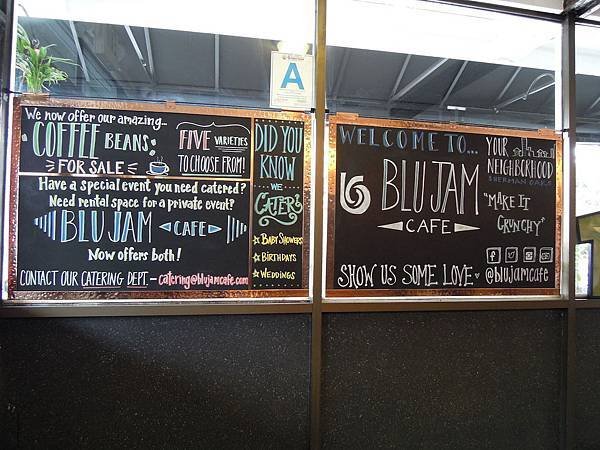 A
We now offer our amazing...
COFFEE
BEANS
FOR SALE
FIVE VARIETIES
TO CHOOSE FROM!
Have a special event you need catered?
Need rental space for a private event?
BLU JAM
CAFE
Now offers both!
CONTACT OUR CATERING DEPT. - catering@blujamcafe.com
DID YOU
KNOW
WE
CATER
BABY SHOWERS
BIRTHDAYS
WEDDINGS
WELCOME TO...
BLU JAM
CAFE
YOUR
NEIGHBORHOOD
SHERMAN OAKS
"MAKE IT
CRUNCHY"
SHOW US SOME LOVE
@blujamcafe